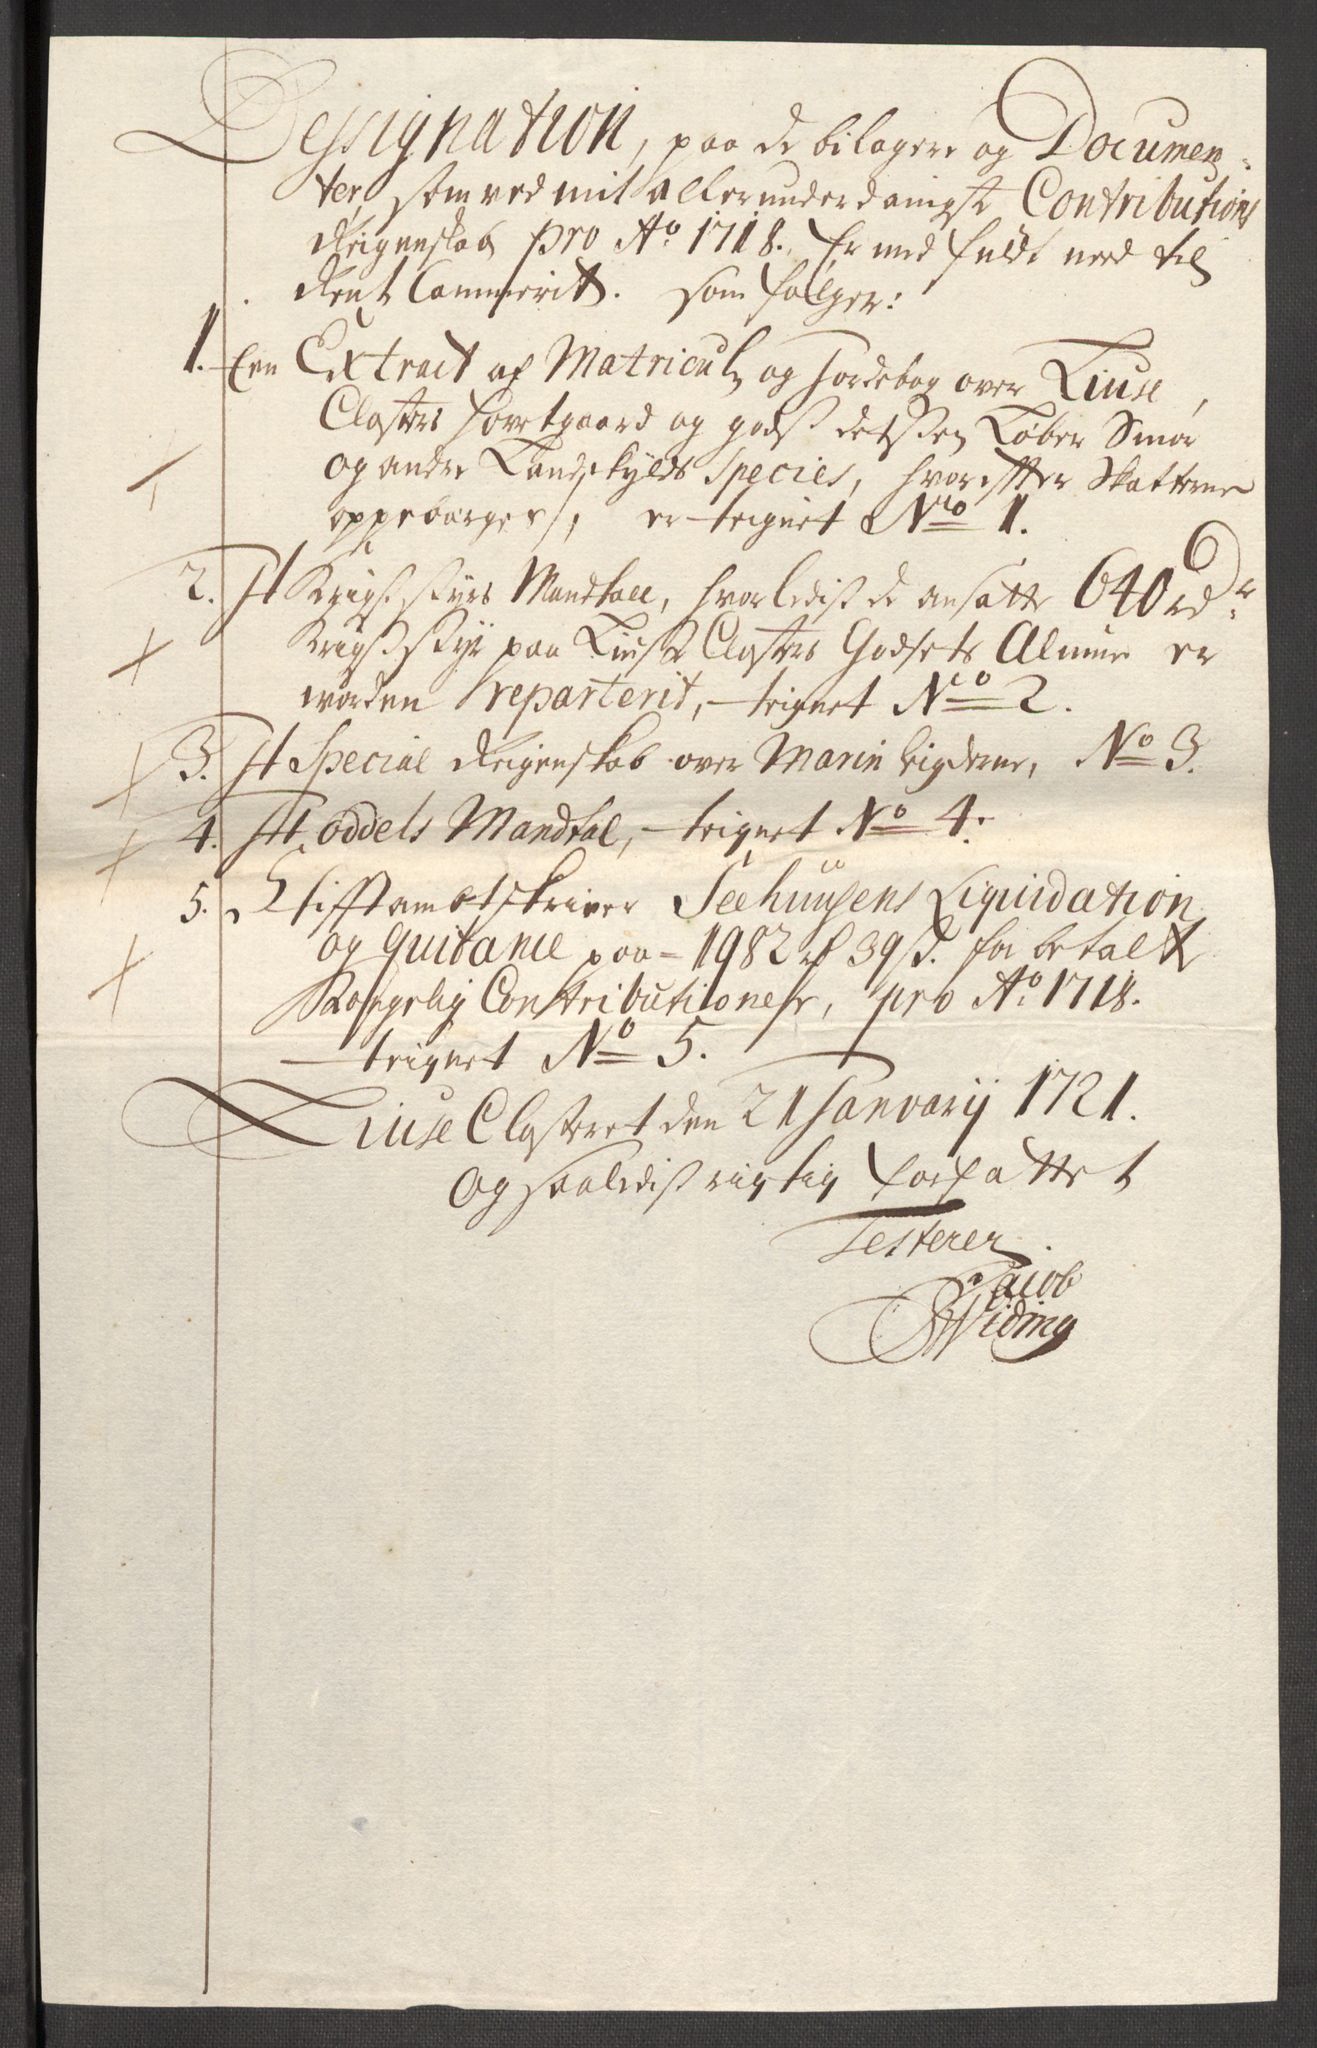 Dessignation, paa de bilager og Documen-
ter, som ved mit allerunderdanigste Contributions
Reigenskab pro Ao 1718. Er med fuldt need til
Rent Cammerit. som følger:
1. Een Extract af Matricul og Jordebog over Liuse
Closters Hovetgaard og godβ dets Løber Smør
og andre Landskylds Species, hvorefter Skatterne
oppebærges, er teignet No 1.
2. Et Krigs styrs Mandtall, hvorledis de ansatte 640 rdr:
Krigs styr paa Liuse Closters Godsets Almue er
worden reparterit, teignet No 2.
3. Et Special Reigenskab over Marin Leigderne, No 3.
4. Et oddels Mandtal, teignet No 4.
5. Stifftambtskriver Seehuusens Liquidation
og quitance paa 1982 rd 39 s. for betalte
Kongelig Contributioner, pro Ao 1718.
teignet No 5.
Liuse Closteret den 21 Janvarij 1721.
Og saaledis rigtig forfattet
Testerer
Jacob
Widing